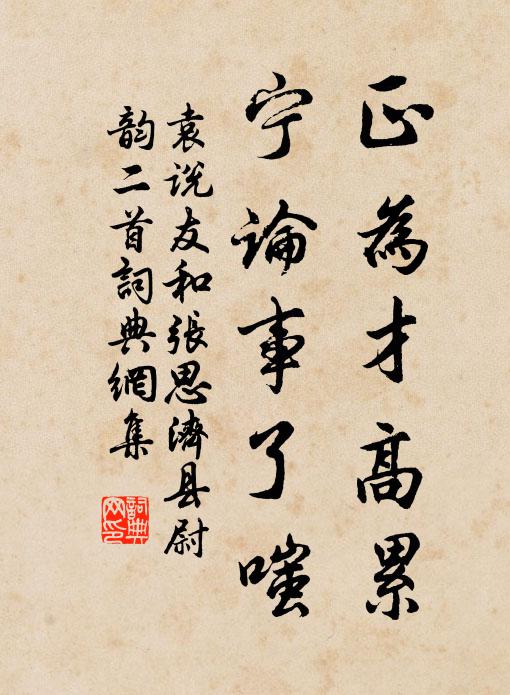 正為才高累
宁論事了嗤
袁说友和張思濟县尉
韵二首詞典網集
詞典网印